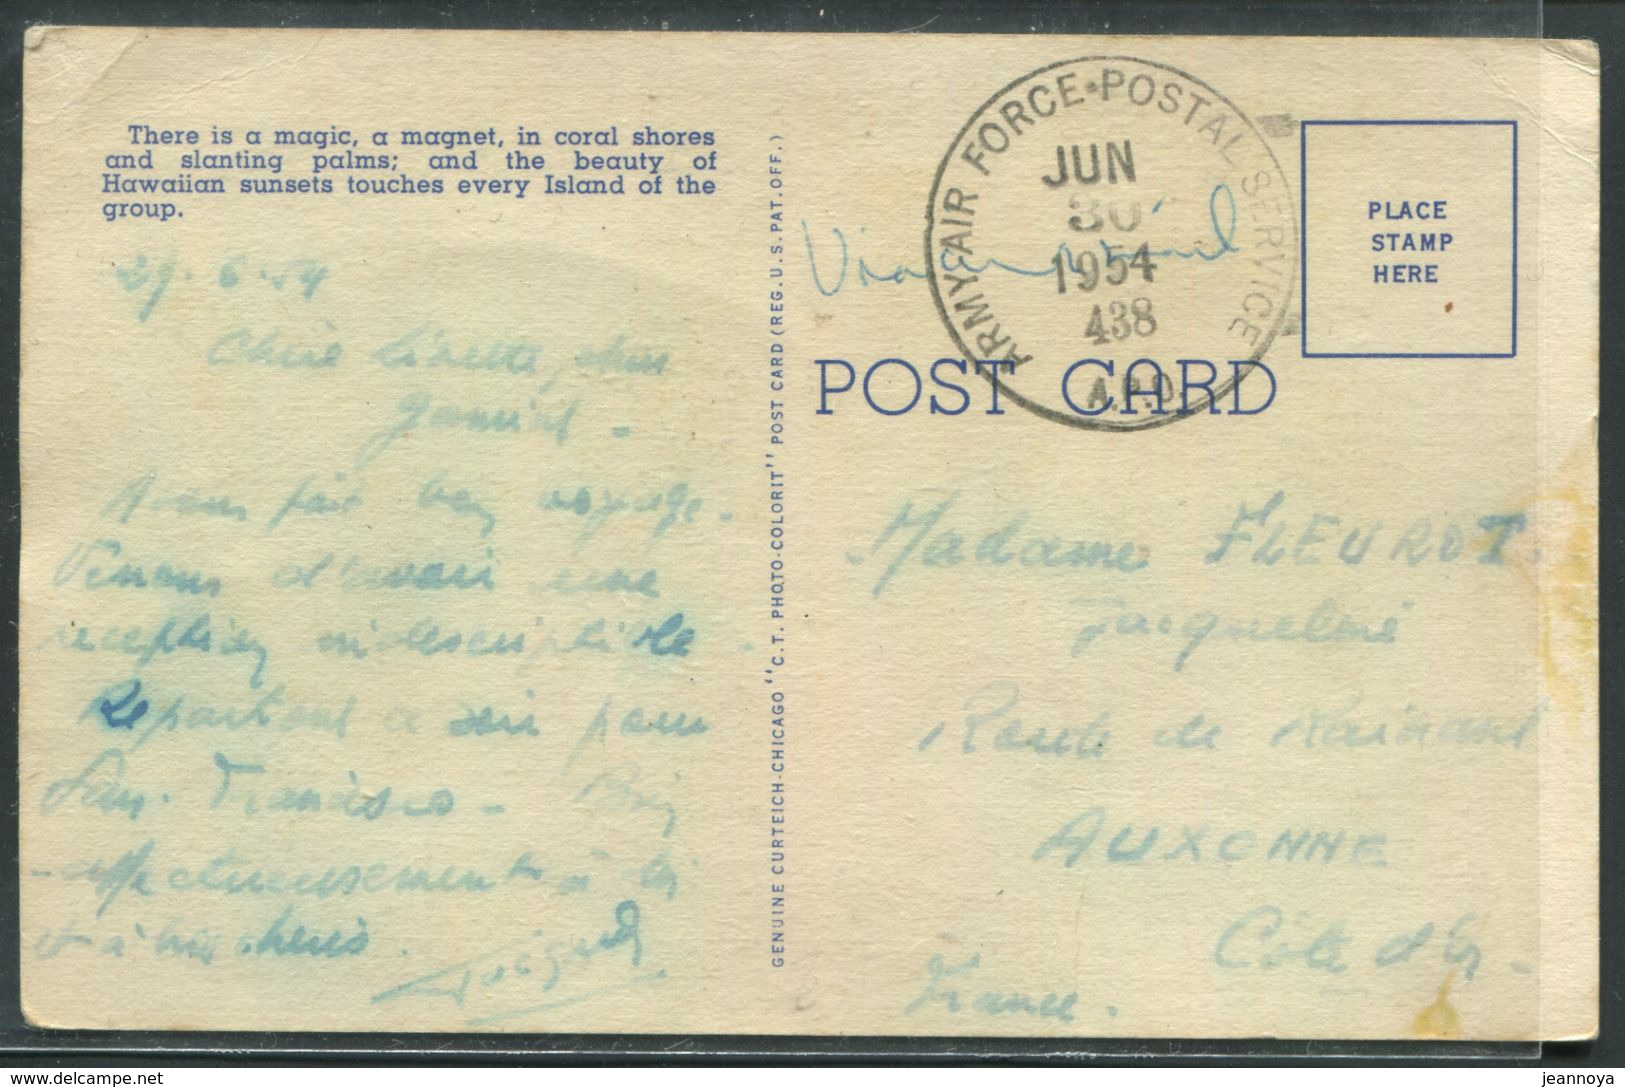 There is a magic, a magnet, in coral shores
and slanting palms; and the beauty of
Hawaiian sunsets touches every Island of the
group.
29-6-54
Chère
Avons fait bon voyage.
Venons d'avoir une
réception indescriptible.
Repartons ce soir pour
San-Francisco - Bien
affectueusement à toi
et à tes chéris.
GENUINE CURTEICH-CHICAGO "C.T. PHOTO-COLORIT" POST CARD (REG. U.S. PAT. OFF.)
ARMY-AIR FORCE POSTAL SERVICE
JUN
30
1954
438
A.P.O.
PLACE
STAMP
HERE
POST CARD
Madame FLEUROT
Jacqueline
Route de
AUXONNE
Côte d'Or -
France.
www.delcampe.net
jeannoya